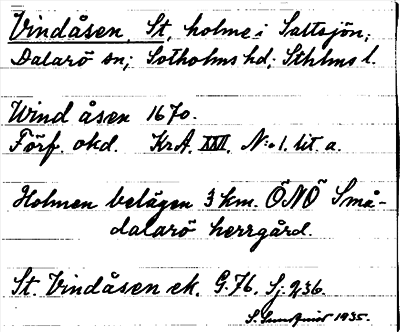 Vindåsen, St, holme i Saltsjön;
Dalarö sn; Sotholms hd; Sthlms l.
Wind åsen 1670.
Förf. okd. KrA. XXVI. N:o 1. lit a.
Holmen belägen 3 km. ÖNÖ Små-
dalarö herrgård.
St. Vindåsen ek. G.76. Sj: 236.
S. 1935.